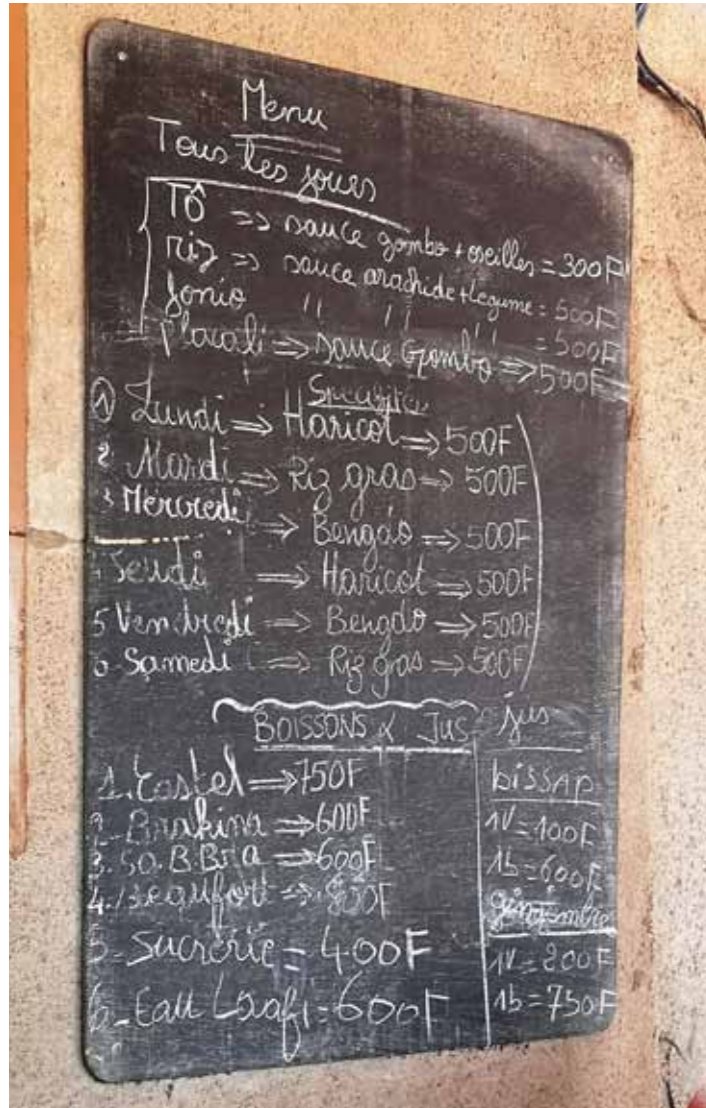 Menu
Tous les jours
TÔ => sauce gombo + oseilles = 300F
riz => sauce arachide + legume = 500F
fonio " " " = 500F
Placali => sauce Gombo => 500F
1 Lundi => Haricot => 500F
2 Mardi => Riz gras => 500F
3 Mercredi => Bengdo => 500F
Jeudi => Haricot => 500F
5 Vendredi => Bengdo => 500F
6 Samedi => Riz gras => 500F
BOISSONS & JUS
1. Castel => 750F
2 - Brakina => 600F
3. SO.B.Bra => 600F
4. Beaufort =>
5 - Sucrerie = 400F
6 - Eau Laafi = 600F
jus
bissap
1V = 100F
1b = 600F
gingembre
1V = 200F
1b = 750F